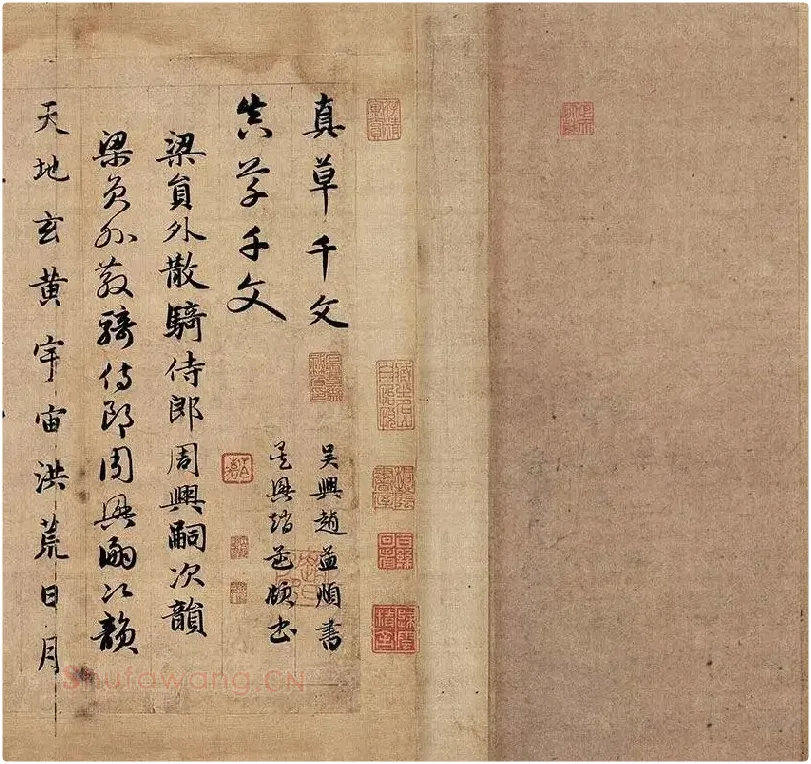 真草千文
真草千文
吴興趙孟頫書
吴興趙孟頫書
梁員外散騎侍郎周興嗣次韻
梁員外散騎侍郎周興嗣次韻
天地玄黄宇宙洪荒日月
Shufawang.CN